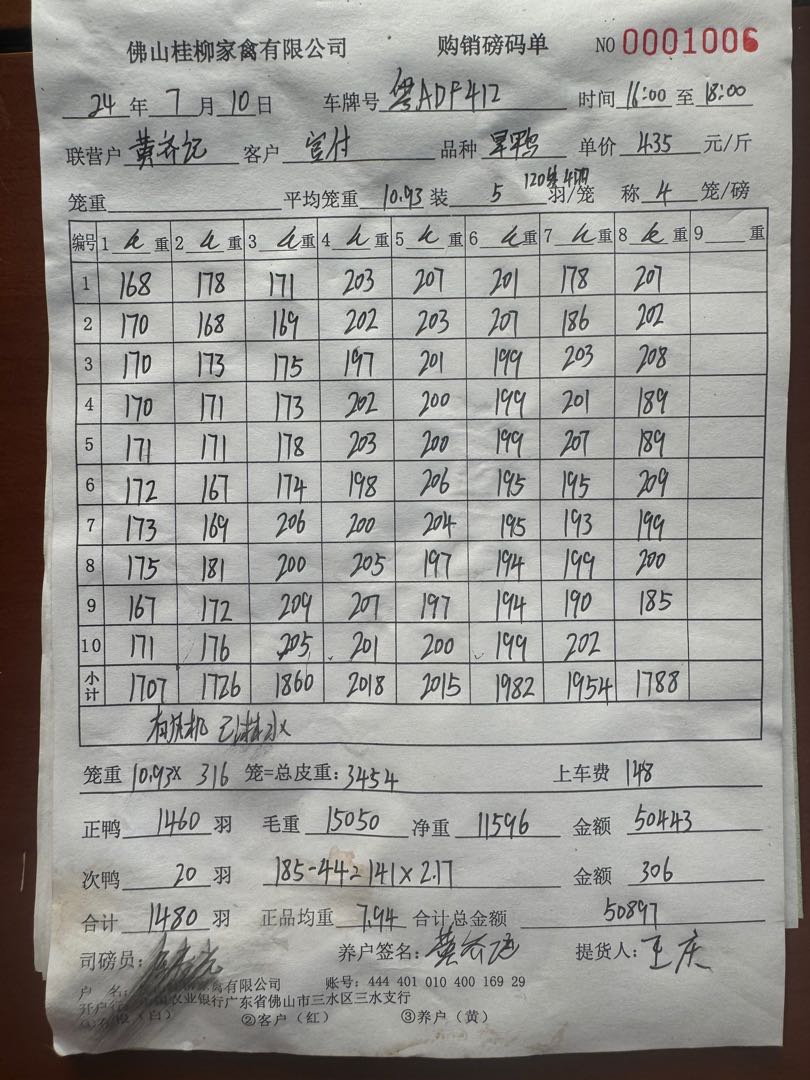 佛山桂柳家禽有限公司 购销磅码单 NO 0001006
24 年 7 月 10 日 车牌号 粤ADF412 时间 16:00 至 18:00
联营户 黄乔记 客户 客户 品种 旱鸭 单价 4.35 元/斤
笼重 平均笼重 10.93 装 5 羽/笼 称 4 笼/磅
编号 1 重 2 重 3 重 4 重 5 重 6 重 7 重 8 重 9 重
1 168 178 171 203 207 201 178 207
2 170 168 169 202 203 207 186 202
3 170 173 175 197 201 199 203 208
4 170 171 173 202 200 199 201 189
5 171 171 178 203 200 199 207 189
6 172 167 174 198 206 195 195 209
7 173 169 206 200 204 195 193 199
8 175 181 200 205 197 194 199 200
9 167 172 209 207 197 194 190 185
10 171 176 205 201 200 199 202
小计 1707 1726 1860 2018 2015 1982 1954 1788
笼重 10.93× 316 笼=总皮重: 3454 上车费 148
正鸭 1460 羽 毛重 15050 净重 11596 金额 50443
次鸭 20 羽 185-44=141×2.17 金额 306
合计 1480 羽 正品均重 7.94 合计总金额 50897
司磅员: 养户签名: 提货人: 王庆
户 名: 家禽有限公司 账号: 444 401 010 400 169 29
开户行: 农业银行广东省佛山市三水区三水支行
(白) ②客户(红) ③养户(黄)